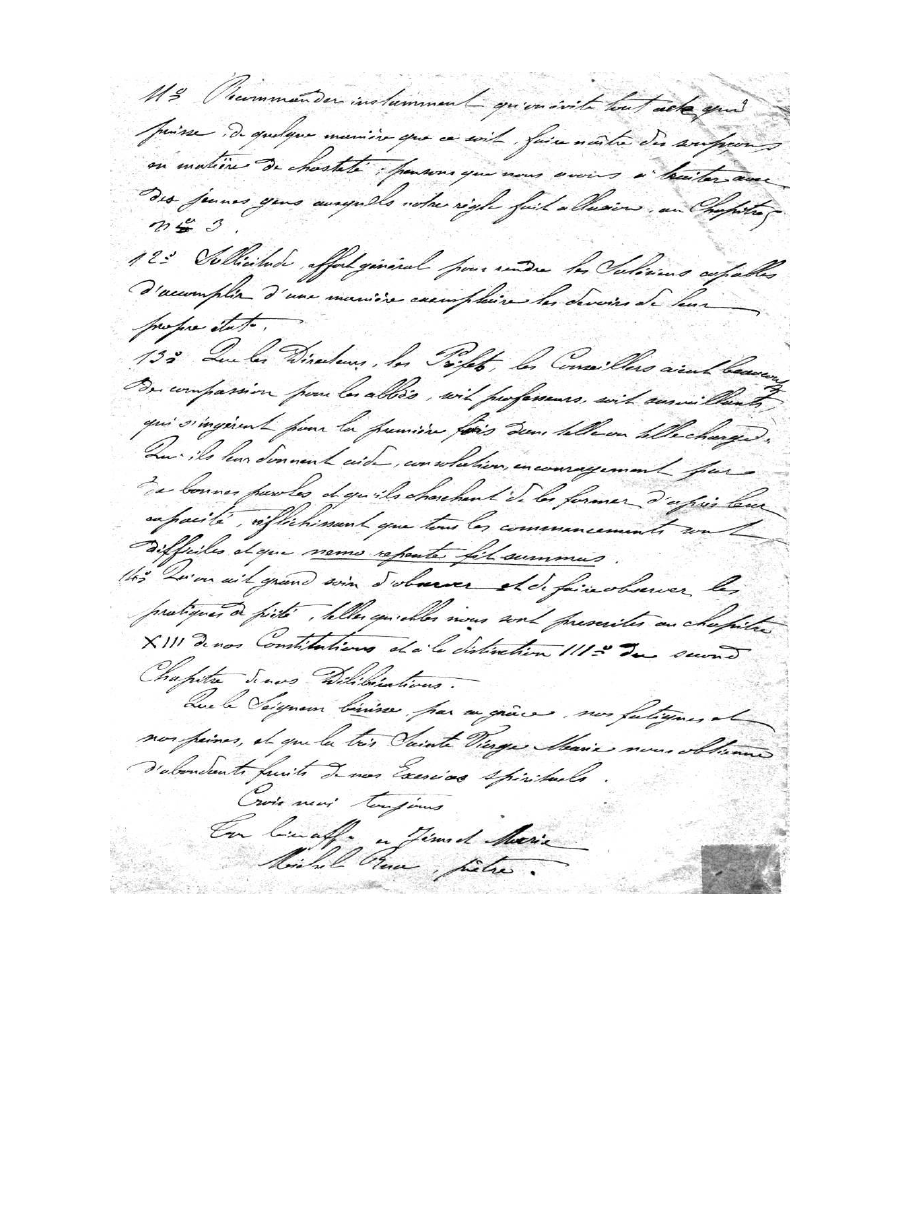 11º Recommander instamment qu'on évite tout acte qui
puisse, de quelque manière que ce soit, faire naître des soupçons
en matière de chasteté ; pensons que nous avons à traiter avec
des jeunes gens auxquels notre règle fait allusion, au Chapitre 5
nº 3.
12º Sollicitude, effort général pour rendre les Salésiens capables
d'accomplir d'une manière exemplaire les devoirs de leur
propre état.
13º Que les Directeurs, les Préfets, les Conseillers aient beaucoup
de compassion pour les abbés, soit professeurs, soit surveillants,
qui s'ingèrent pour la première fois dans telle ou telle charge.
Qu'ils leur donnent aide, consolation, encouragement par
de bonnes paroles et qu'ils cherchent à les former d'après leur
capacité, réfléchissant que tous les commencements sont
difficiles et que nemo repente fit summus.
14º Qu'on ait grand soin d'observer et de faire observer les
pratiques de piété, telles qu'elles nous sont prescrites au chapitre
XIII de nos Constitutions et à la distinction IIIº du second
Chapitre de nos Délibérations.
Que le Seigneur bénisse, par sa grâce, nos fatigues et
nos peines, et que la très Sainte Vierge Marie nous obtienne
d'abondants fruits de nos Exercices spirituels.
Crois-moi toujours
Ton bien aff. en Jésus et Marie
Michel Rua, prêtre.